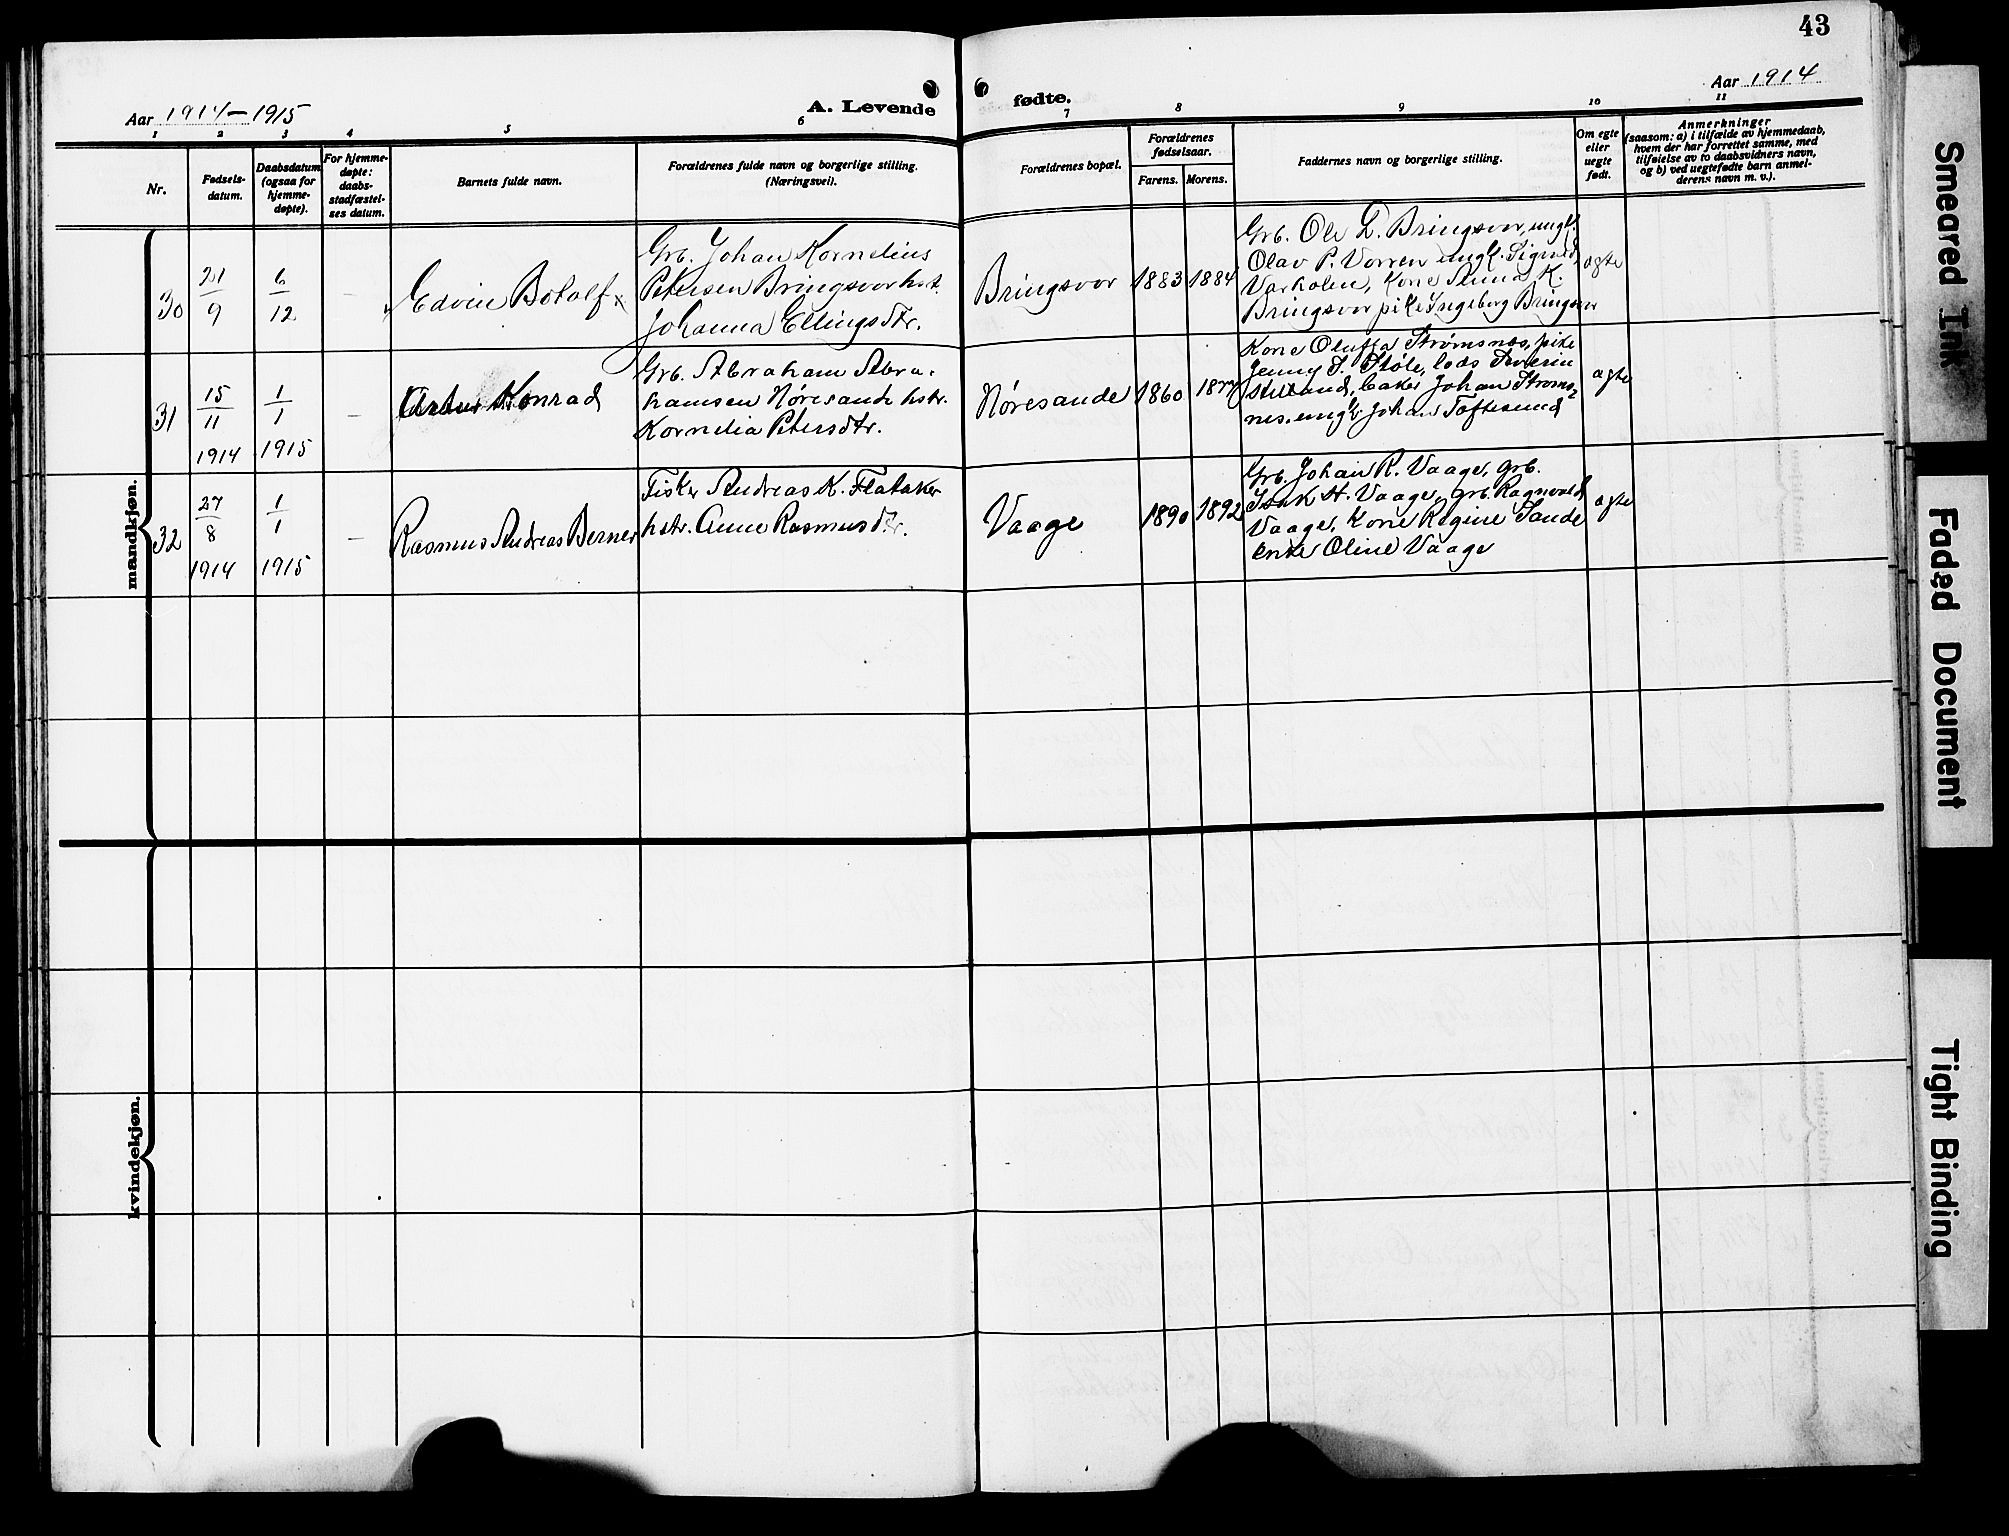 43
Aar 1914-1915
A. Levende fødte.
Aar 1914
1 2 3 4 5 6 7 8 9 10 11
Nr.
Fødsels-
datum.
Daabsdatum
(ogsaa for
hjemme-
døpte).
For hjemme-
døpte:
daabs-
stadfæstel-
ses datum.
Barnets fulde navn.
Forældrenes fulde navn og borgerlige stilling.
(Næringsvei).
Forældrenes bopæl.
Forældrenes
fødselsaar.
Farens. Morens.
Faddernes navn og borgerlige stilling.
Om egte
eller
uegte
født.
Anmerkninger
(saasom: a) i tilfælde av hjemmedaab,
hvem der har forrettet samme, med
tilføielse av to daabsvidners navn,
og b) ved uegtefødte barn anmel-
derens navn m. v.).
mandkjøn.
30
21/9
6/12
–
Edvin Botolf
Grb. Johan Kornelius
Petersen Bringsvor hst.
Johanna Ellingsdtr.
Bringsvor
1883
1884
Grb. Ole E. Bringsvor, ungk.
Olav P. Vorren ungk. Sigurd
Varholm, Kone Anna K.
Bringsvor pike Ingeborg Bringsvor
egte
31
15/11
1914
1/1
1915
–
Konrad
Grb. Abraham Abra-
hamsen Nøresande hstr.
Kornelia Petersdtr.
Nøresande
1860
Kone Oluffa Strømsnes, pike
Jenny S. Støle, lods Severin
Johan Strøms-
nes, ungk. Johan Toftesund
egte
32
27/8
1914
1/1
1915
–
Rasmus Andreas Berner
Fisker Andreas K. Flatøker
hstr. Anne Rasmusdtr.
Vaage
1890
1892
Grb. Johan R. Vaage, grb.
Isak H. Vaage, grb. Ragnvald
Vaage, Kone Regine Sande
enke Oline Vaage
egte
kvindekjøn.
Smeared Ink
Faded Document
Tight Binding